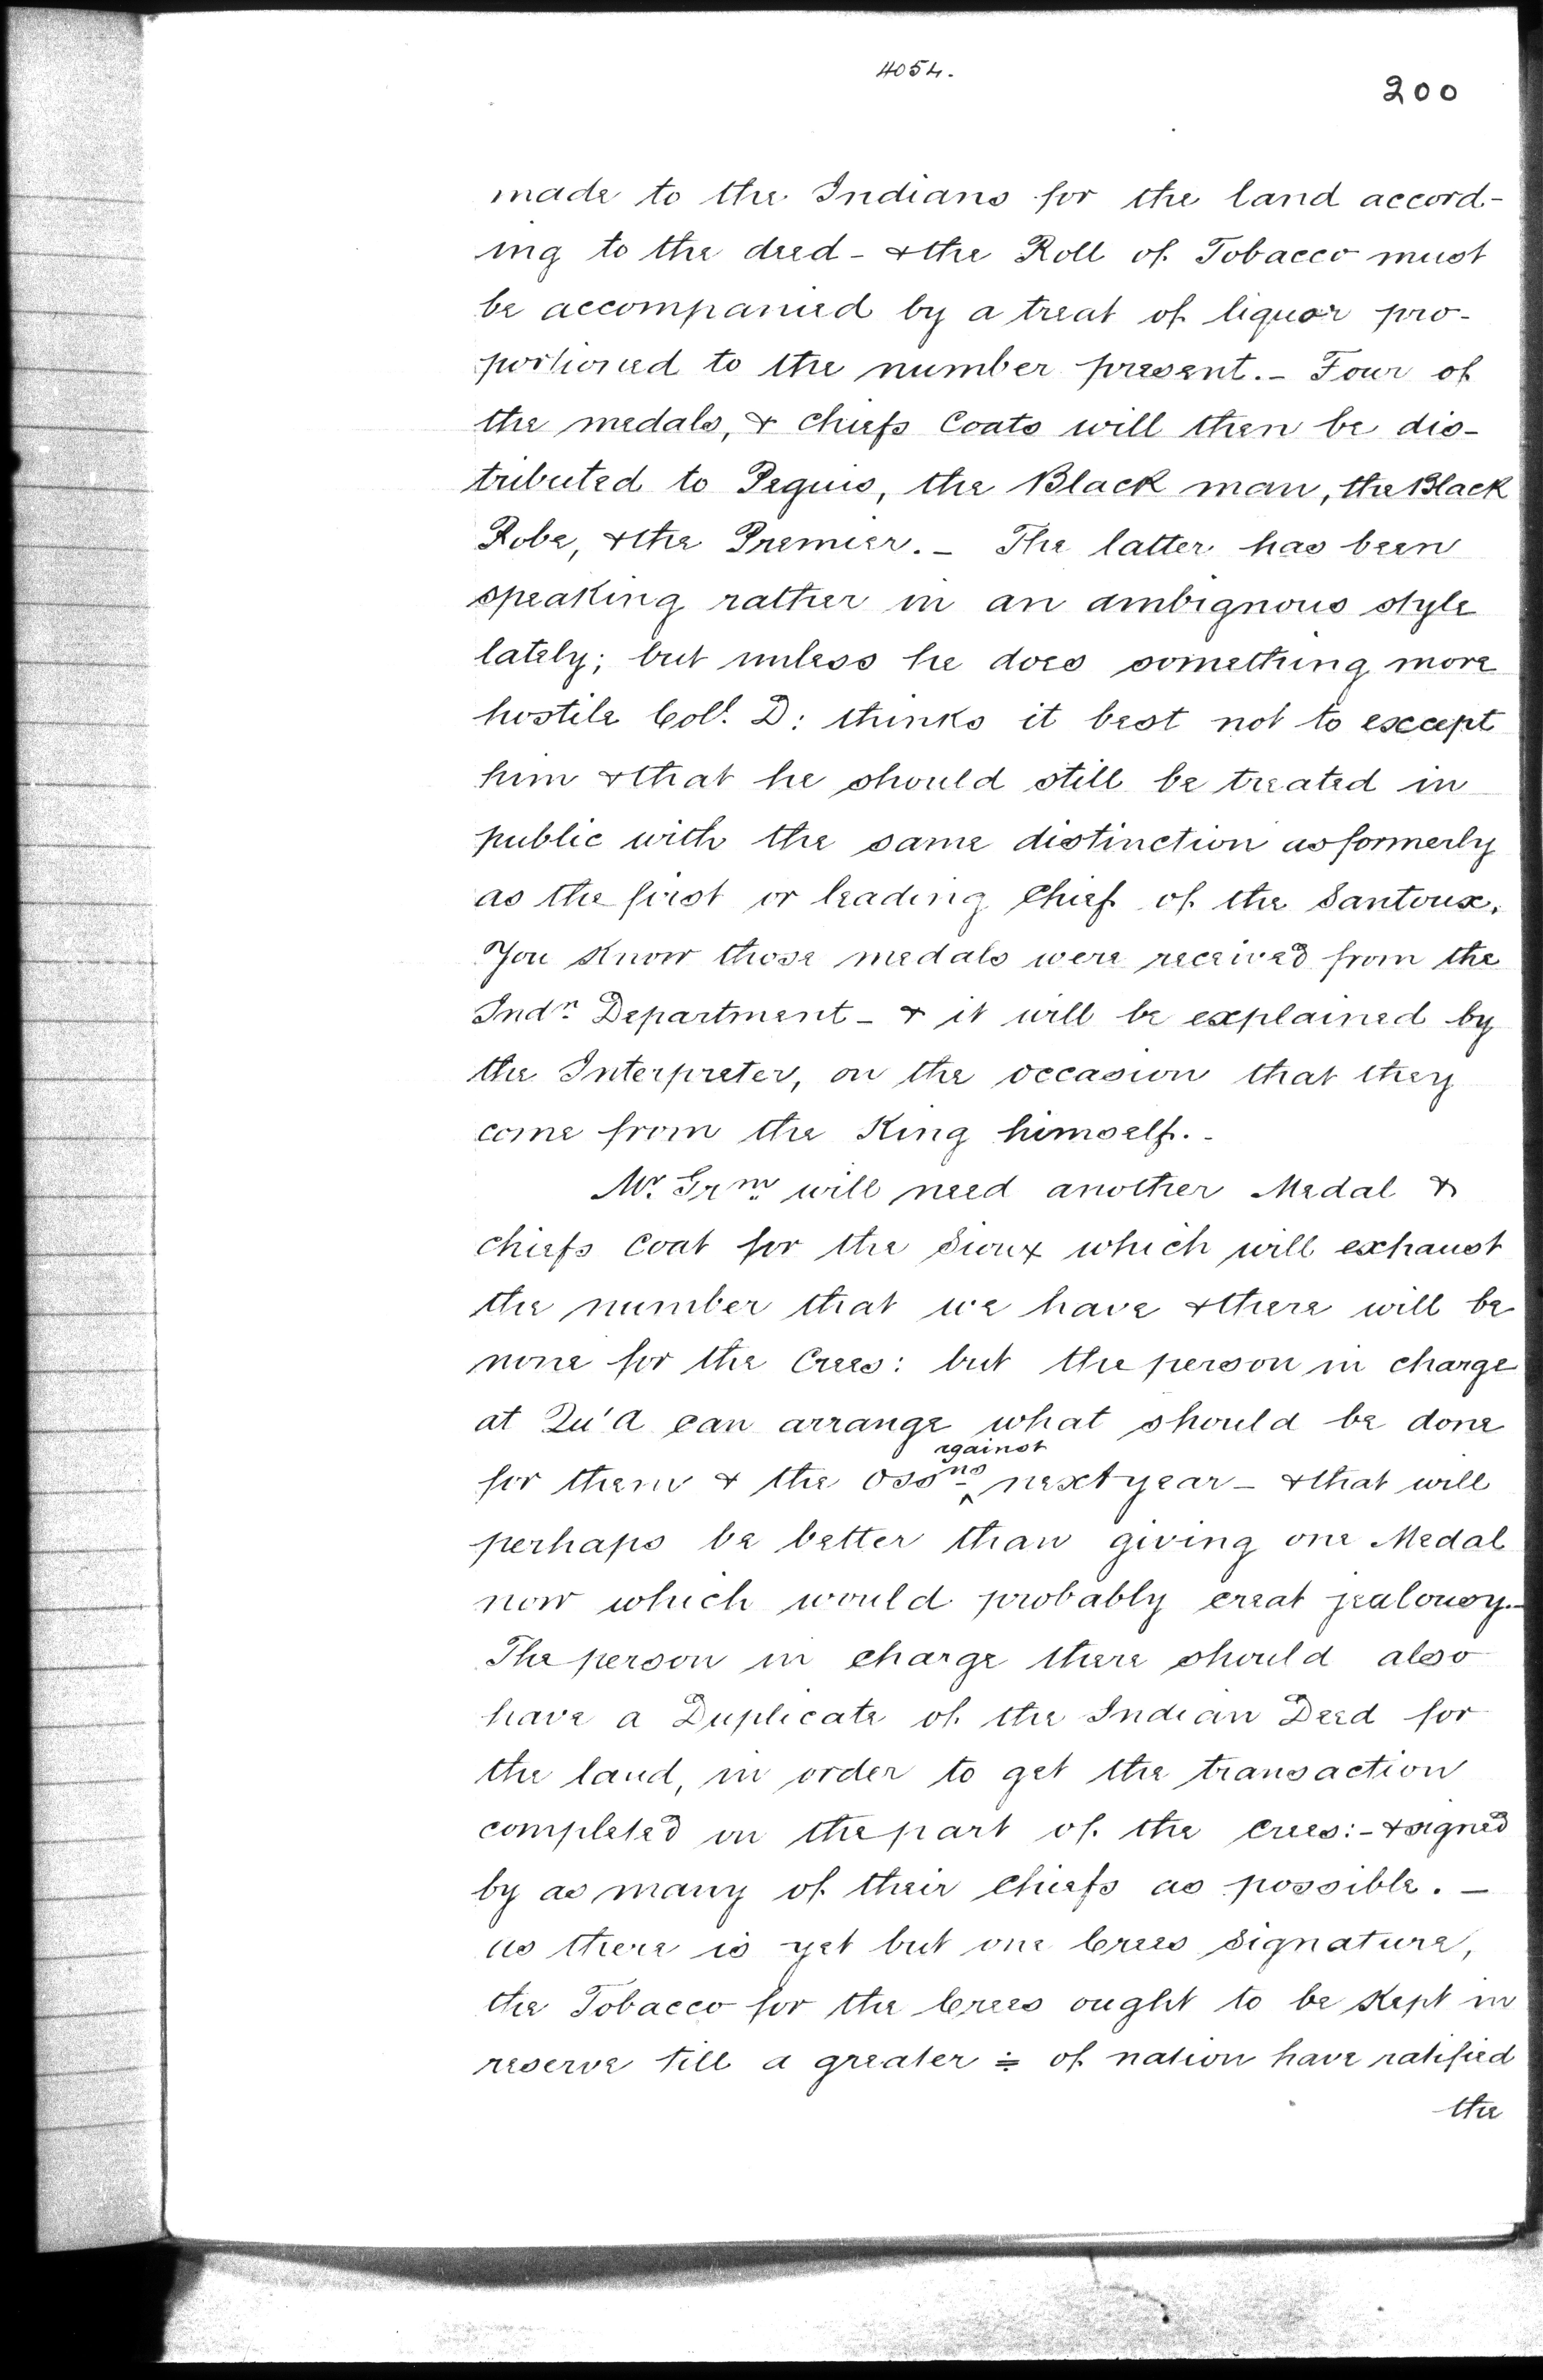 4054.
200
made to the Indians for the land accord-
ing to the deed - & the Roll of Tobacco must
be accompanied by a treat of liquor pro-
portioned to the number present. - Four of
the medals, & chiefs Coats will then be dis-
tributed to Peguis, the Black man, the Black
Robe, & the Premier. - The latter has been
speaking rather in an ambignous style
lately; but unless he does something more
hostile Col. D: thinks it best not to except
him & that he should still be treated in
public with the same distinction as formerly
as the first or leading Chief of the Santoux.
You Know those medals were received from the
Indn. Department - & it will be explained by
the Interpreter, on the occasion that they
come from the King himself. -
Mr. Grm. will need another Medal &
chiefs Coat for the Sioux which will exhaust
the number that we have & there will be
none for the Crees: but the person in charge
at Qu'A can arrange what should be done
against
for them & the Ossns ^ next year - & that will
perhaps be better than giving one Medal
now which would probably creat jealousy. -
The person in charge there should also
have a Duplicate of the Indian Deed for
the land, in order to get the transaction
completed on the part of the Crees: - & signed
by as many of their Chiefs as possible. -
as there is yet but one Crees Signature,
the Tobacco for the Crees ought to be Kept in
reserve till a greater ≑ of nation have ratified
the